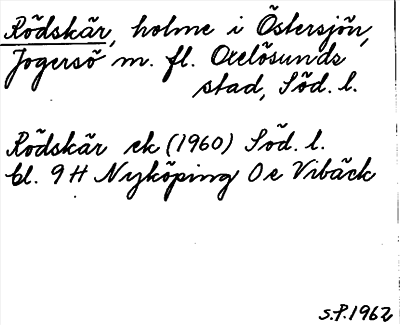 Rödskär, holme i Östersjön,
Jogersö m. fl. Oxelösunds
stad, Söd. l.
Rödskär ek (1960) Söd. l.
bl. 9 H Nyköping Oe Vibäck
S.P. 1962